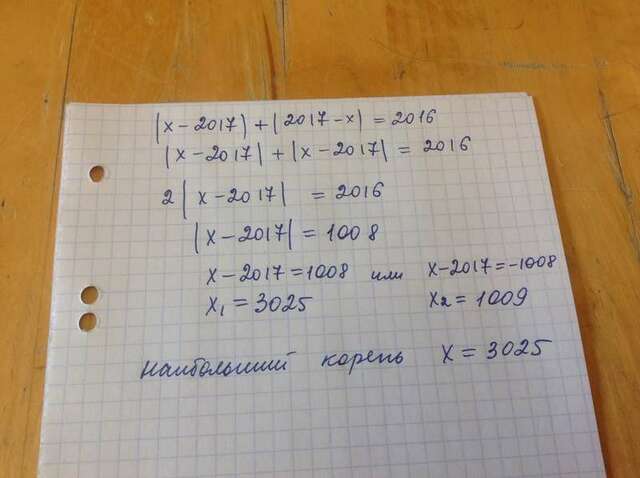 |x-2017|+|2017-x|=2016
|x-2017|+|x-2017|=2016
2|x-2017|=2016
|x-2017|=1008
x-2017=1008 или x-2017=-1008
x₁=3025 x₂=1009
наибольший корень x=3025